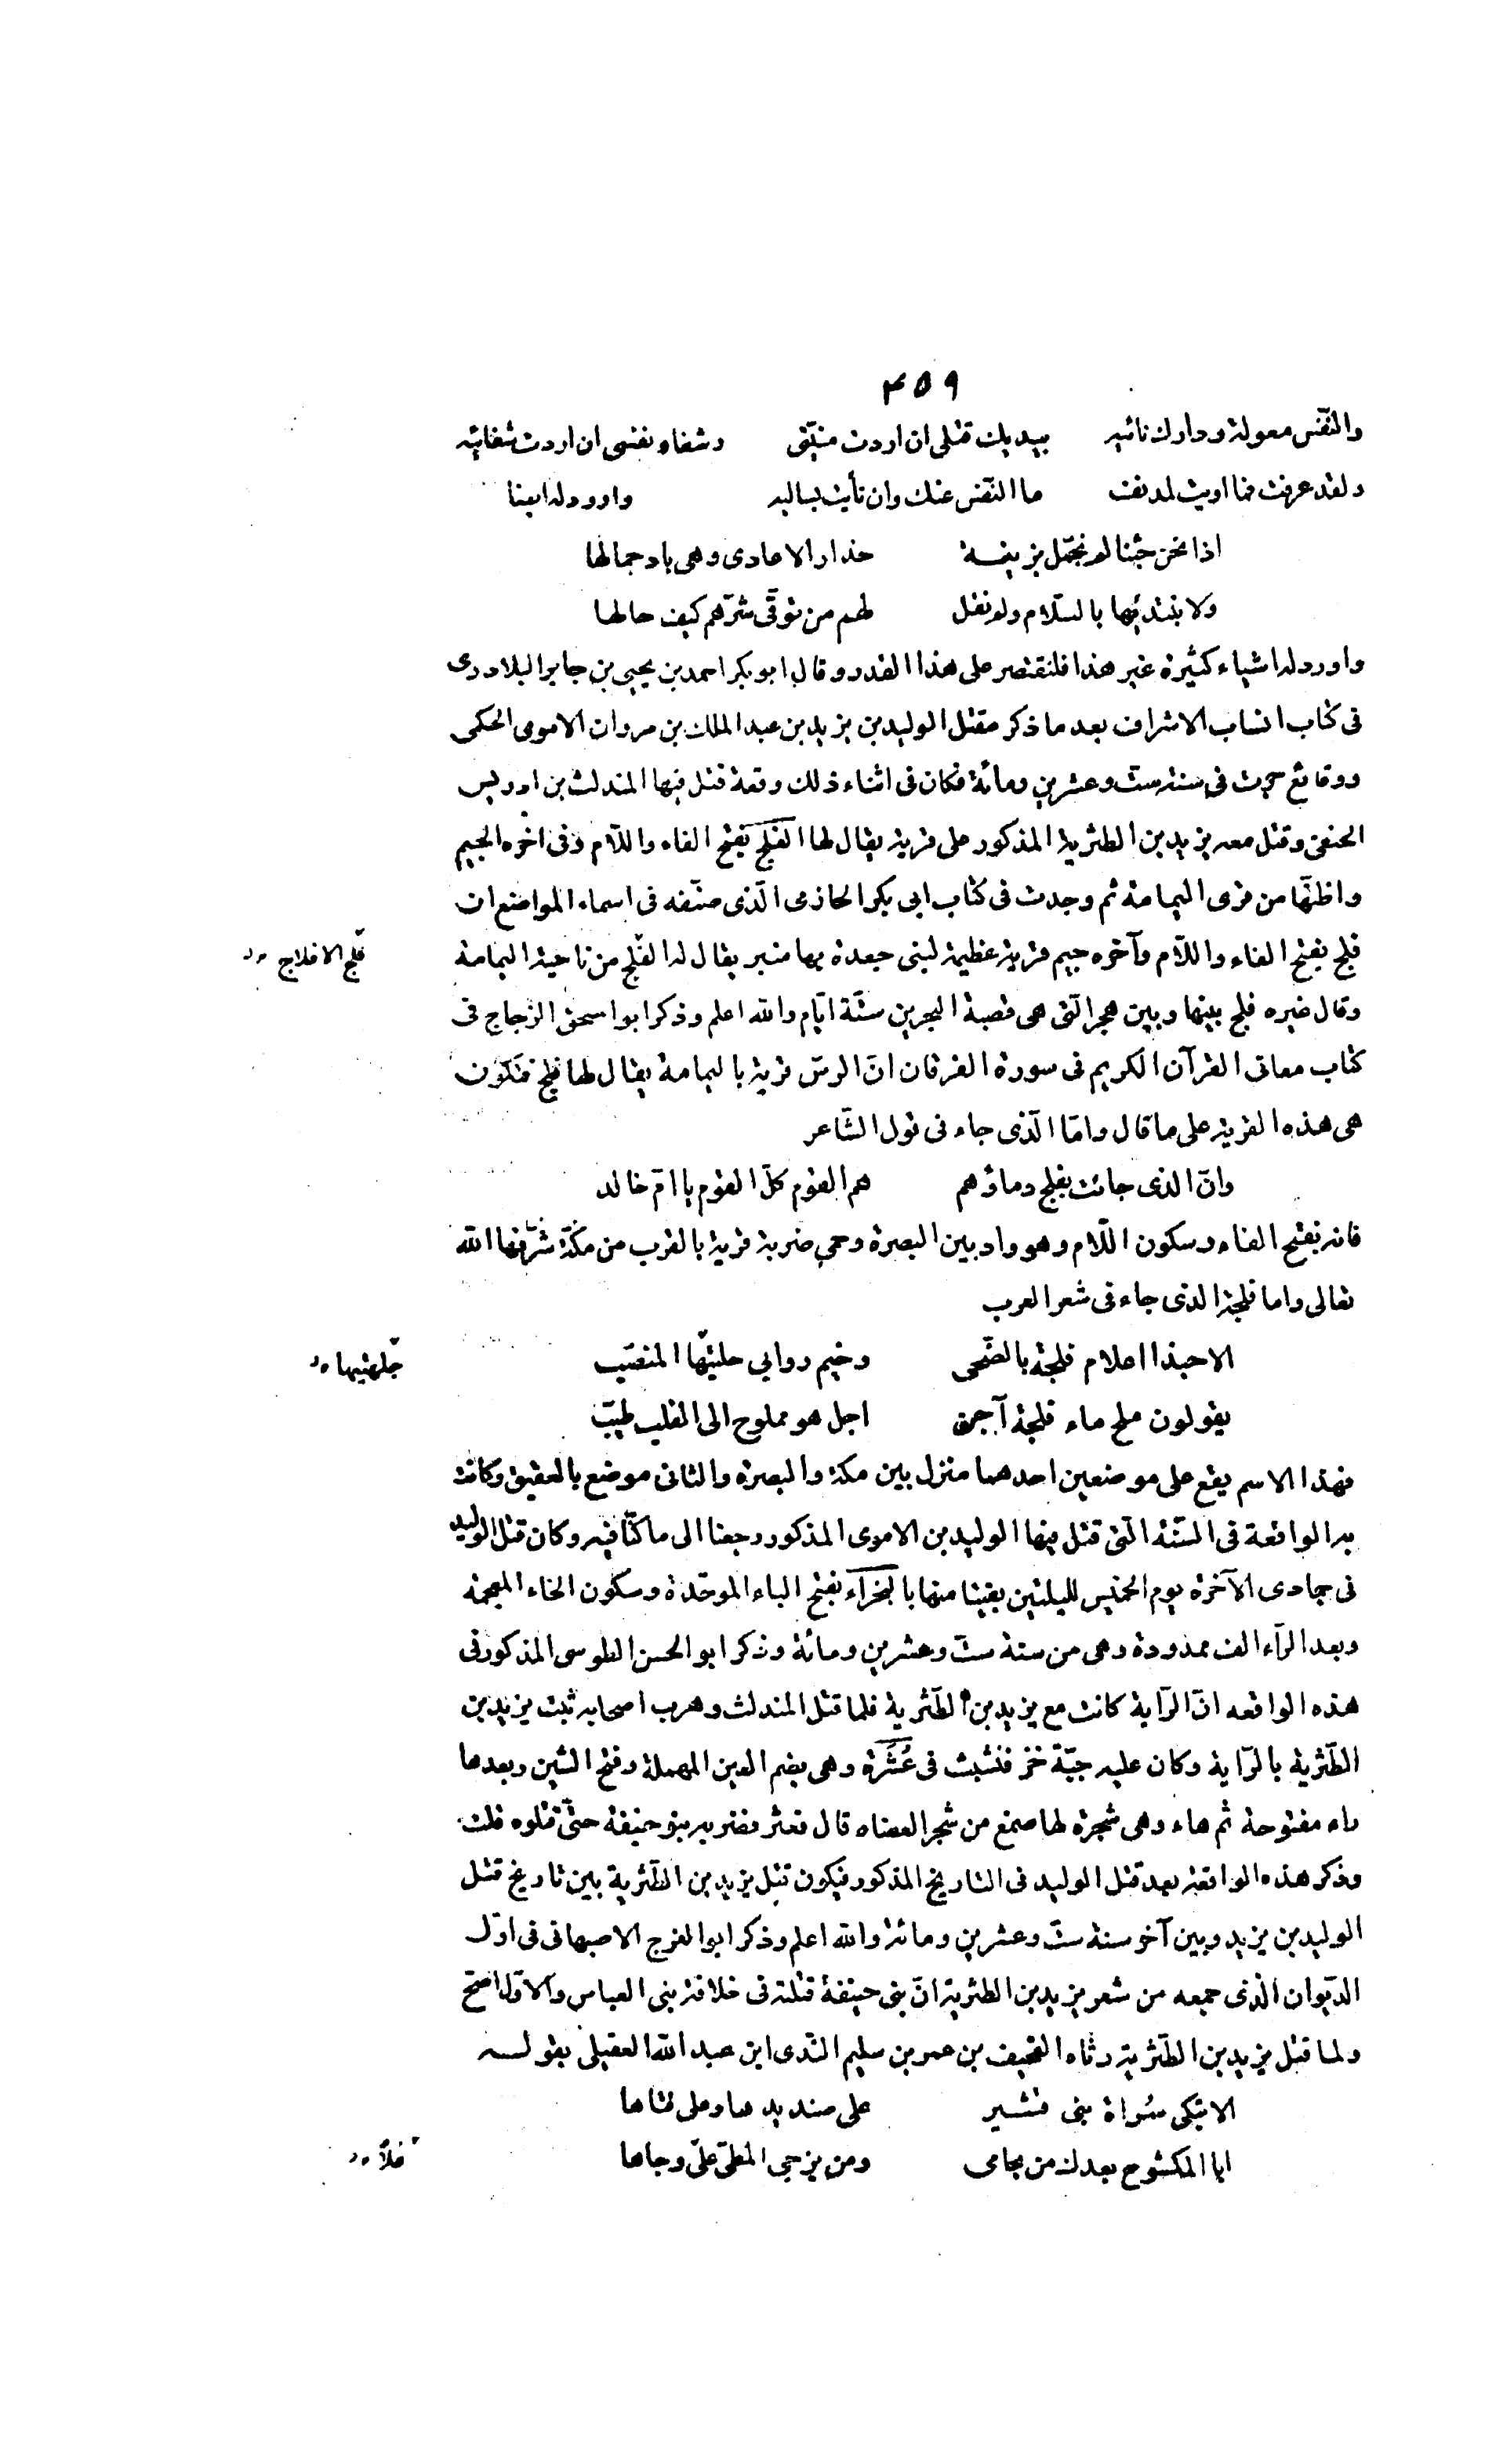 ٣٥٩
والنّفس معولة ودارك نائيه بيديك قتلى ان اردت منيّتى وشفاء نفسى ان اردت شفائيه
ولقد عرفت فما اويت لمدنف ما النّفس عنك وان نأيت بساليه واورد له ايضا
اذا نحن جئنا لم نجمّل بزينة حذار الاعادى وهى باد جمالها
ولا نبتديها بالسّلام ولم نقل لهم من توقّى شرّهم كيف حالها
واورد له اشياء كثيرة غير هذا فلنقتصر على هذا القدر وقال ابو بكر احمد بن يحيى بن جابر البلادرى
فى كتاب انساب الاشراف بعد ما ذكر مقتل الوليد بن يزيد بن عبد الملك بن مروان الاموى الحكمى
ووقايع جرت فى سنة ستّ وعشرين ومائة فكان فى اثناء ذلك وقعة قتل فيها المندلث بن ادريس
الحنفى وقتل معه يزيد بن الطثرية المذكور على قرية يقال لها الفلج بفتح الفاء واللّام وفى اخره الجيم
واظنّها من قرى اليمامة ثم وجدت فى كتاب ابى بكر الحازمى الّذى صنّفه فى اسماء المواضع ان
فلج بفتح الفاء واللّام وآخره جيم قرية عظيمة لبنى جعدة بها منبر يقال له الفلج من ناحية اليمامة
فلج الافلاج
وقال غيره فلج بينها وبين هجر الّتى هى قصبة البحرين ستّة ايّام والله اعلم وذكر ابو اسحق الزجاج فى
كتاب معانى القرآن الكريم فى سورة الفرقان انّ الرسّ قرية باليمامة يقال لها فلج فتكون
هى هذه القرية على ما قال وامّا الّذى جاء فى قول الشّاعر
وانّ الذى حانت بفلج دماؤهم هم القوم كلّ القوم يا امّ خالد
فانه بفتح الفاء وسكون اللّام وهو واد بين البصرة وحمى ضرية قرية بالقرب من مكّة شرّفها الله
تعالى واما فلجة الذى جاء فى شعر العرب
الا حبذا اعلام فلجة بالضّحى وخيم روابى حليتّها المنصّب
جلهتيها
يقولون ملح ماء فلجة آجن اجل هو مملوح الى القلب طيبّ
فهذا الاسم يقع على موضعين احدهما منزل بين مكة والبصرة والثانى موضع بالعقيق وكانت
به الواقعة فى السّنة الّتى قتل فيها الوليد بن الاموى المذكور رجعنا الى ما كنّا فيه وكان قتل الوليد
فى جمادى الآخرة يوم الخميس لليلتين بقيتا منها بالبخرآء بفتح الباء الموحّدة وسكون الخاء المعجمة
وبعد الرّاء الف ممدودة وهى من سنة ستّ وعشرين ومائة وذكر ابو الحسن الطوسى المذكور فى
هذه الواقعه انّ الرّاية كانت مع يزيد بن الطّثرية فلما قتل المندلث وهرب اصحابه ثبت يزيد بن
الطّثرية بالرّاية وكان عليه جبّة خز فنشبت فى عُشَرة وهى بضم العين المهملة وفتح الشين وبعدها
راء مفتوحة ثم هاء وهى شجرة لها صمغ من شجر العضاه قال فعثر فضربه بنو حنيفة حتّى قتلوه قلت
وذكر هذه الواقعة بعد قتل الوليد فى التاريخ المذكور فيكون قتل يزيد بن الطّثرية بين تاريخ قتل
الوليد بن يزيد وبين آخر سنة ستّ وعشرين ومائة والله اعلم وذكر ابو الفرج الاصبهانى فى اوّل
الدّيوان الّذى جمعه من شعر يزيد بن الطثرية انّ بنى حنيفة قتلته فى خلافة بنى العباس والاوّل اصحّ
ولما قتل يزيد بن الطّثرية رثاه القحيف بن عمر بن سليم النّدى ابن عبد الله العقيلى بقوله
الا تبكى سُراة بنى قشير على صنديدها وعلى فتاها
ابا المكشوح بعدك من يحامى ومن يزجى المطىّ على وجاها